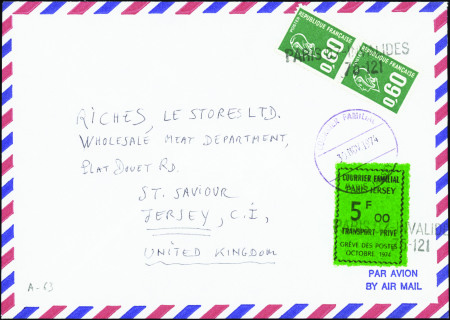 RÉPUBLIQUE FRANÇAISE
0,60
RÉPUBLIQUE FRANÇAISE
0,60
PARIS INVALIDES
RICHES, LE STORES LTD.
WHOLESALE MEAT DEPARTMENT,
PLAT DOUET RD.
ST. SAVIOUR
JERSEY, C.I,
UNITED KINGDOM
COURRIER FAMILIAL
COURRIER FAMILIAL
PARIS-JERSEY
5 F 00
TRANSPORT-PRIVÉ
GRÈVE DES POSTES
OCTOBRE 1974
PAR AVION
BY AIR MAIL
A-63